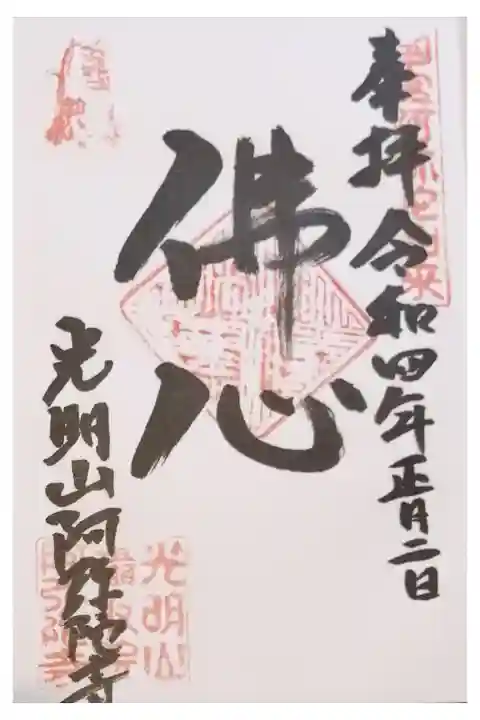 奉拝 令和四年正月二日
佛心
光明山阿弥陀寺
光明山